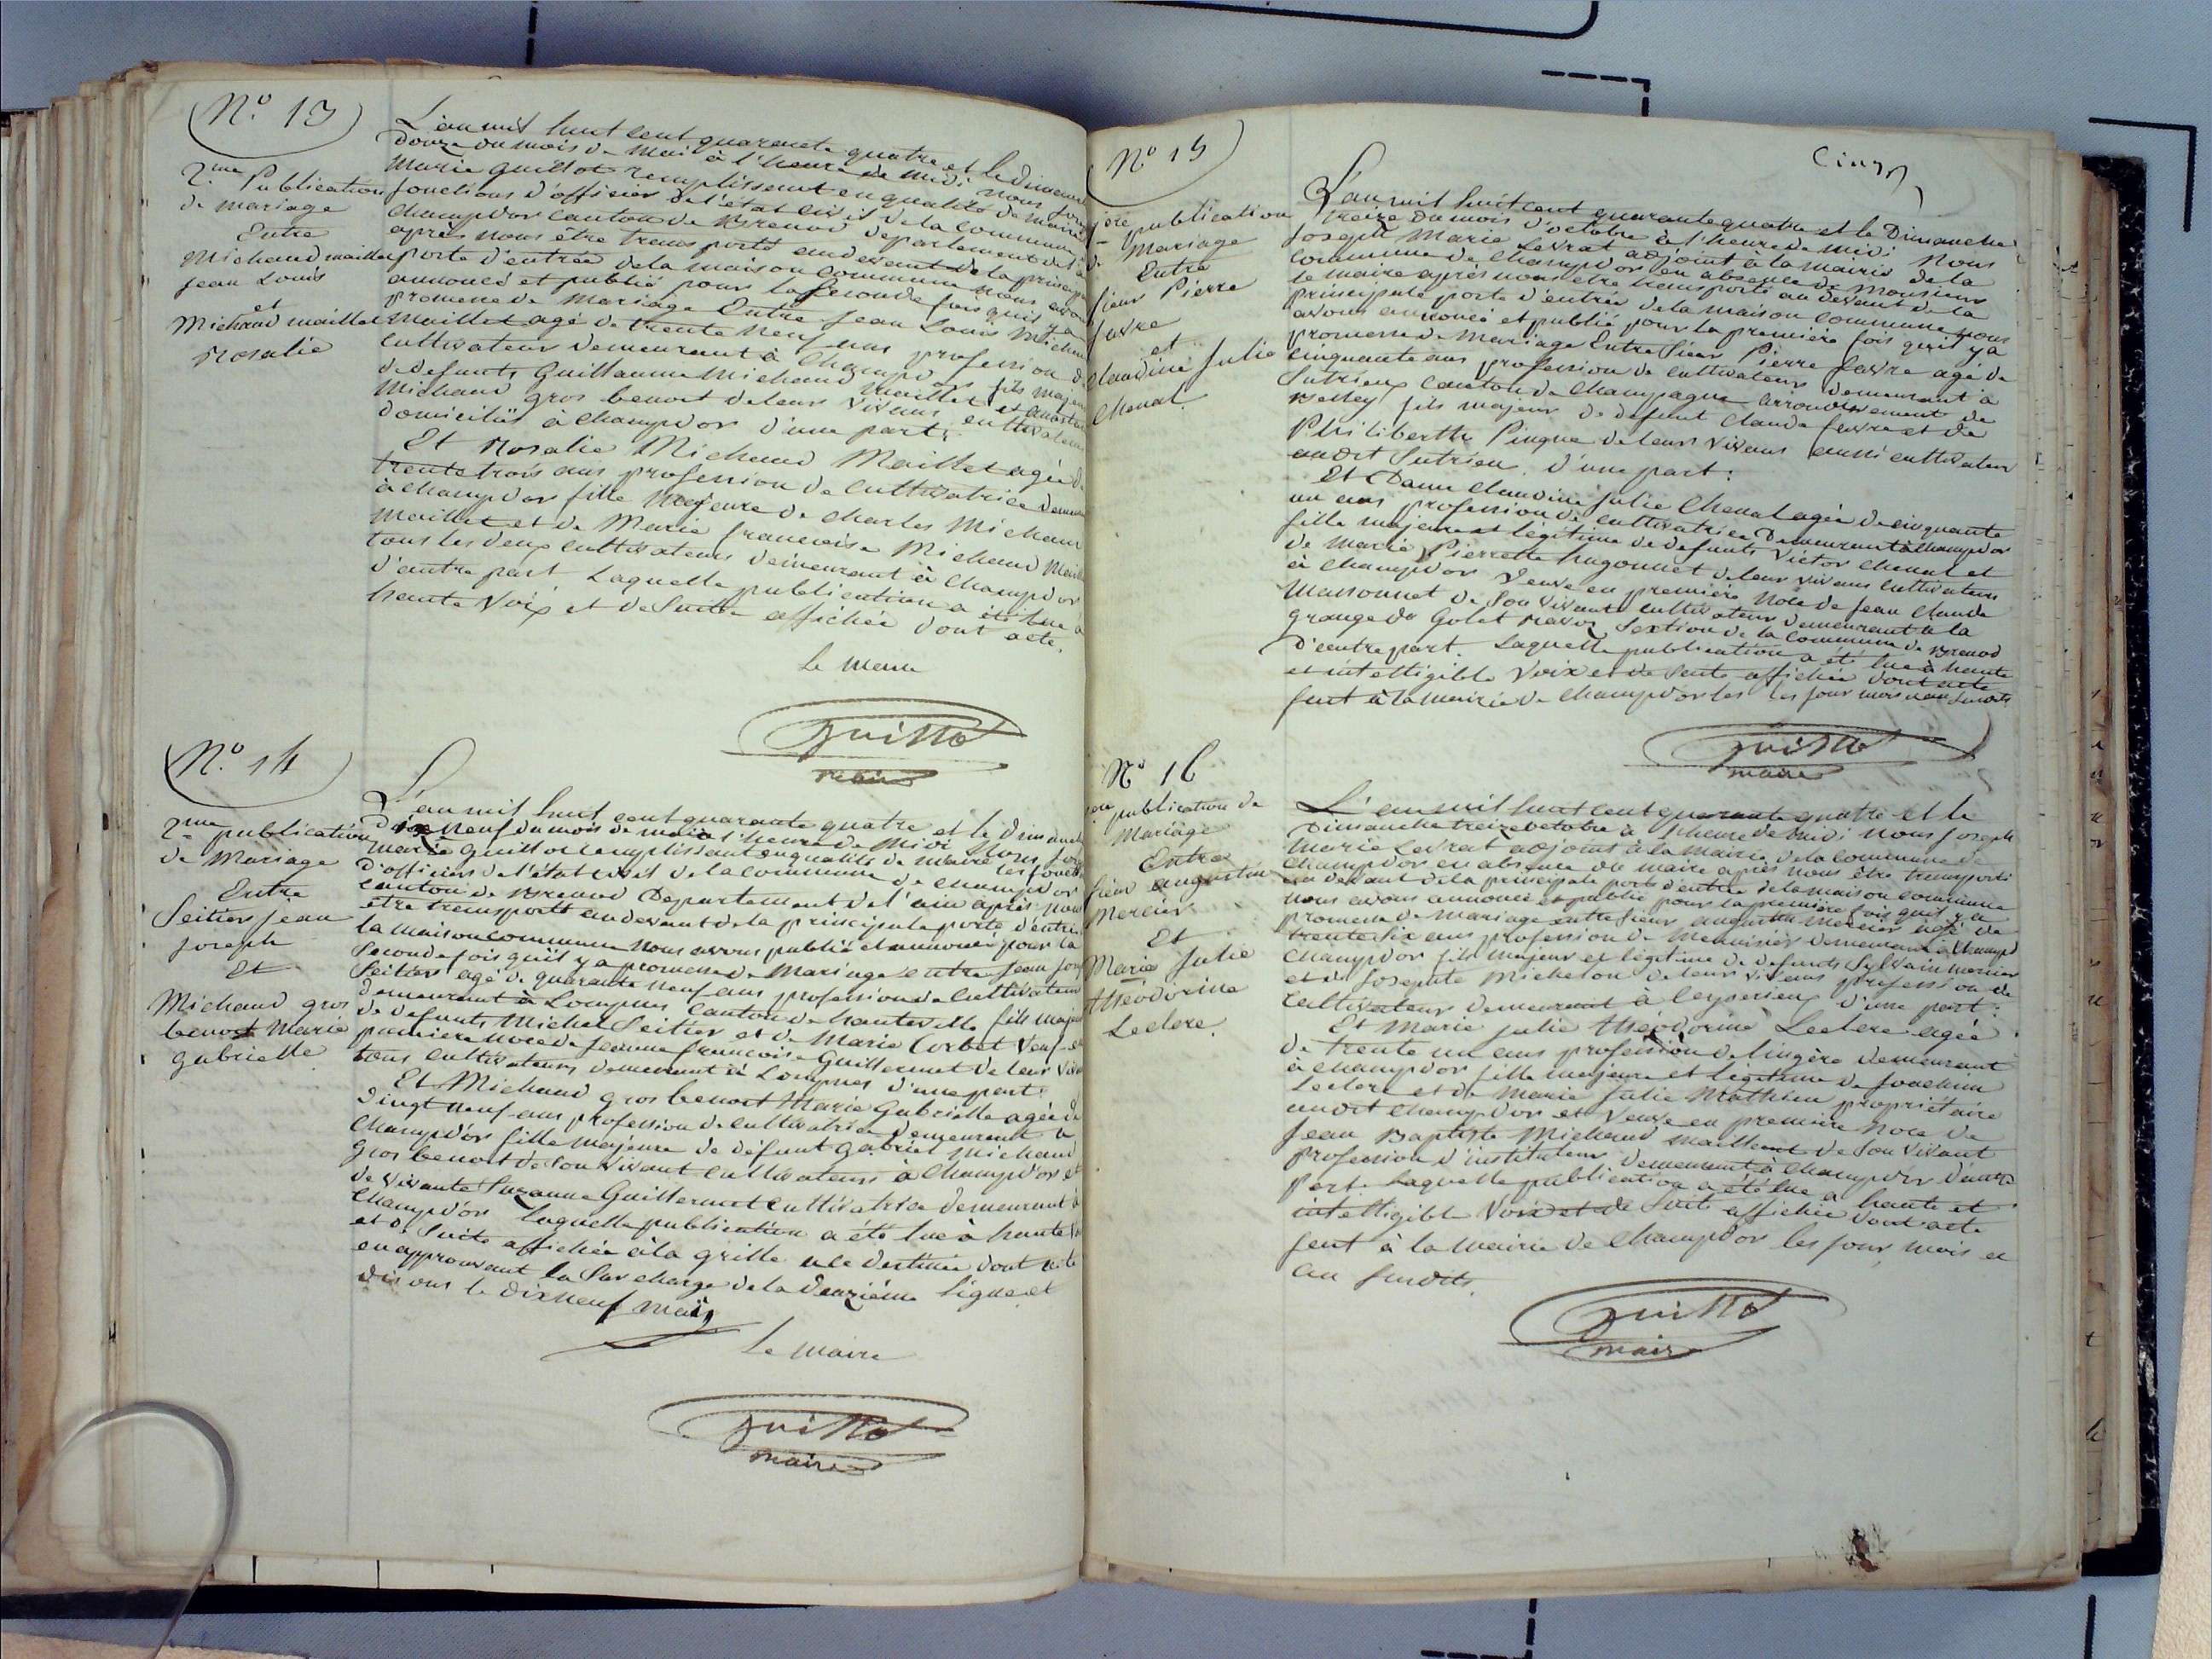 N.° 13
2.me Publication
de mariage
Entre
Michaud maillet
jean Louis
et
Michaud maillet
Rosalie
L'an mil huit cent quarante quatre et le dimanche
douze du mois de mai à l'heure de midi nous
Marie Guillot remplissant en qualité de maire
fonctions d'officier de l'état civil de la commune
Champdor canton de Brenod departement de l'
après nous être transporté au devant de la principale
porte d'entrée de la maison commune nous avons
annoncé et publié pour la seconde fois qu'il y a
promesse de mariage Entre jean Louis Michaud
Maillet agé de trente neuf ans profession de
cultivateur demeurant à Champdor fils majeur
de defunts Guillaume Michaud Maillet et
Michaud gros benoit de leurs vivans cultivateurs
domiciliés à Champdor d'une part;
Et Rosalie Michaud Maillet agée de
trente trois ans profession de cultivatrice
à Champdor fille Majeure de Charles Michaud
Maillet et de Marie francoise Michaud
tous les deux cultivateurs demeurant à Champdor
d'autre part Laquelle publication a été lue à
haute Voix et de suite affichée dont acte.
Le maire
Guillot
maire
N.° 14
2.me publication
de Mariage
Entre
Seitier jean
joseph
Et
Michaud gros
benoit Marie
gabrielle
L'an mil huit cent quarante quatre et le dimanche
dix neuf du mois de mai à l'heure de Midi Nous
Marie Guillot remplissant en qualité de maire les fonctions
d'officier de l'état civil de la commune de Champdor
canton de Brenod Departement de l'ain après nous
être transporté au devant de la principale porte d'entrée
la maison commune nous avons publié et annoncé pour la
seconde fois qu'il y a promesse de Mariage entre jean
Seitier agé de quarante neuf ans profession de cultivateur
demeurant à Lompnes Canton de hauteville fils majeur
de defunts Michel Seitier et de Marie Corbet Veuf
premiere noce de jeanne francoise Guillermet de leur
tous cultivateurs demeurant à Lompnes d'une part
Et Michaud gros benoit Marie Gabrielle agée de
vingt neuf ans profession de cultivatrice demeurant à
Champdor fille majeure de défunt Gabriel Michaud
gros benoit de son vivant cultivateur à Champdor et
de vivante Suzanne Guillermet cultivatrice demeurant à
Champdor Laquelle publication a été lue à haute
et de suite affichée à la grille a ce destinée dont acte
en approuvant la Surcharge de la deuxième ligne et
disons le dix neuf mai
Le maire
Guillot
maire
N° 15
1ere publication
de mariage
Entre
sieur Pierre
favre
et
Claudine Julie
Chenal.
L'an mil huit cent quarante quatre et le Dimanche
treize du mois d'octobre à l'heure de midi Nous
joseph Marie Levrat adjoint à la mairie de la
commune de Champdor en absence de Monsieur
le maire après nous être transporté au devant de la
principale porte d'entrée de la maison commune nous
avons annoncé et publié pour la première fois qu'il y a
promesse de Mariage Entre sieur Pierre favre agé de
cinquante ans profession de cultivateur demeurant à
Sutrieux canton de Champagne arrondissement de
Belley fils majeur de defunt Claude favre et de
Philiberthe Pingue de leurs vivans aussi cultivateur
audit Sutrieu. d'une part:
Et Dame Claudine julie Chenal agée de cinquante
un ans profession de cultivatrice Demeurant à Champdor
fille majeure et légitime de defunts Victor Chenal et
de Marie Pierrette hugonnet de leur vivans cultivateurs
à Champdor Veuve en première Noce de jean Claude
Massonnet de son vivant cultivateur demeurant à la
Grange du Golet section de la commune de Brenod
d'autre part. Laquelle publication a été lue à haute
et intelligible Voix et de suite affichée dont acte
fait à la mairie de Champdor les les jour mois et an susdits
Guillot
maire
N° 16
publication de
Mariage
Entre
sieur augustin
Mercier
Et
Marie Julie
théodorine
Leclerc.
L'an mil huit cent quarante quatre et le
Dimanche treize octobre à l'heure de midi nous joseph
Marie Levrat adjoint à la mairie de la commune de
Champdor en absence du maire après nous être transporté
au devant de la principale porte d'entrée de la maison commune
nous avons annoncé et publié pour la première fois qu'il y a
promesse de mariage entre sieur augustin Mercier agé de
trente six ans profession de Menuisier demeurant à Champd
Champdor fils majeur et légitime de defunts Sylvain Mercier
et de josephte Micheton de leurs vivans profession de
cultivateur demeurant à leyssieux d'une part:
Et Marie julie théodorine Leclerc agée
de trente un ans profession de lingère demeurant
à Champdor fille majeure et légitime de joachim
Leclerc et de Marie julie Mathieu propriétaire
audit Champdor et Veuve en première Noce de
jean Baptiste Michaud Maillet de son vivant
profession d'instituteur demeurant à Champdor d'autre
part. Laquelle publication a été lue a haute et
intelligible Voix et de suite affichée dont acte
fait à la mairie de Champdor les jour, mois et
an susdits.
Guillot
maire